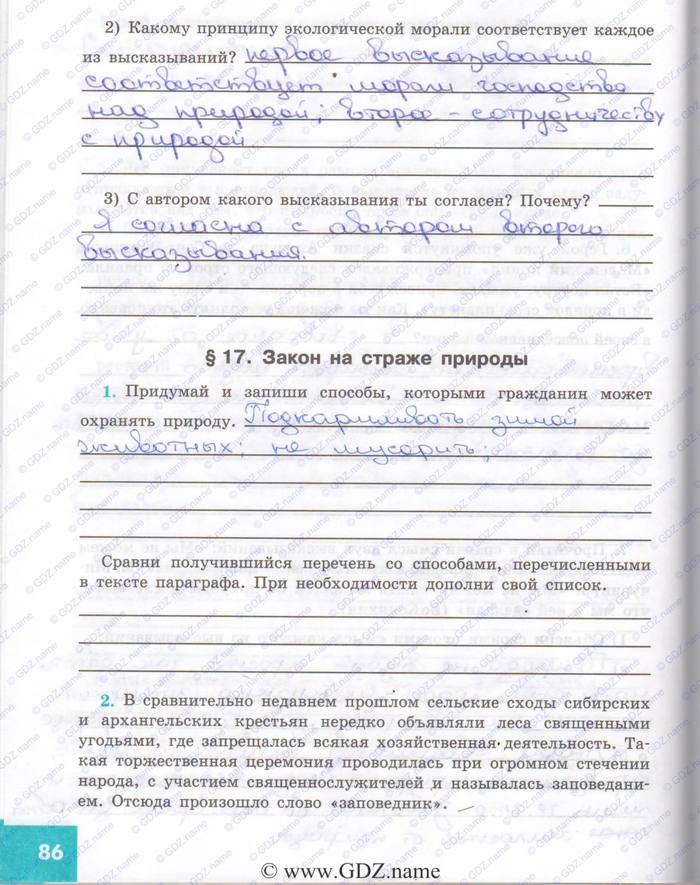 2) Какому принципу экологической морали соответствует каждое
из высказываний? первое высказывание
соответствует морали господства
над природой; второе - сотрудничеству
с природой
3) С автором какого высказывания ты согласен? Почему?
Я согласна с автором второго
высказывания.
§ 17. Закон на страже природы
1. Придумай и запиши способы, которыми гражданин может
охранять природу. Подкармливать зимой
животных; не мусорить;
Сравни получившийся перечень со способами, перечисленными
в тексте параграфа. При необходимости дополни свой список.
2. В сравнительно недавнем прошлом сельские сходы сибирских
и архангельских крестьян нередко объявляли леса священными
угодьями, где запрещалась всякая хозяйственная деятельность. Та-
кая торжественная церемония проводилась при огромном стечении
народа, с участием священнослужителей и называлась заповедани-
ем. Отсюда произошло слово «заповедник».
86
© www.GDZ.name